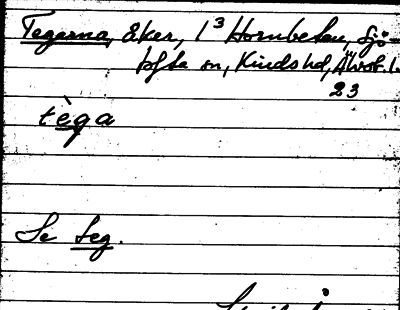 Tegarna, åker, 1³ Hornbetan, Sjö-
tofta sn, Kinds hd, Älvsb. l.
23
tèga
Se teg.